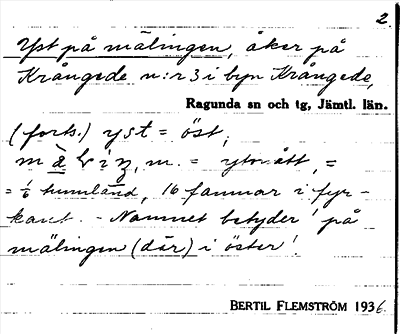 2.
Yst på mälingen, åker på
Krångede n:r 3 i byn Krångede,
Ragunda sn och tg, Jämtl. län.
(forts.) yst = öst,
m, = ytmått, =
= 1/6 tunnland, 16 famnar i fyr-
kant. - Namnet betyder 'på
mälingen (där) i öster'.
BERTIL FLEMSTRÖM 1936.